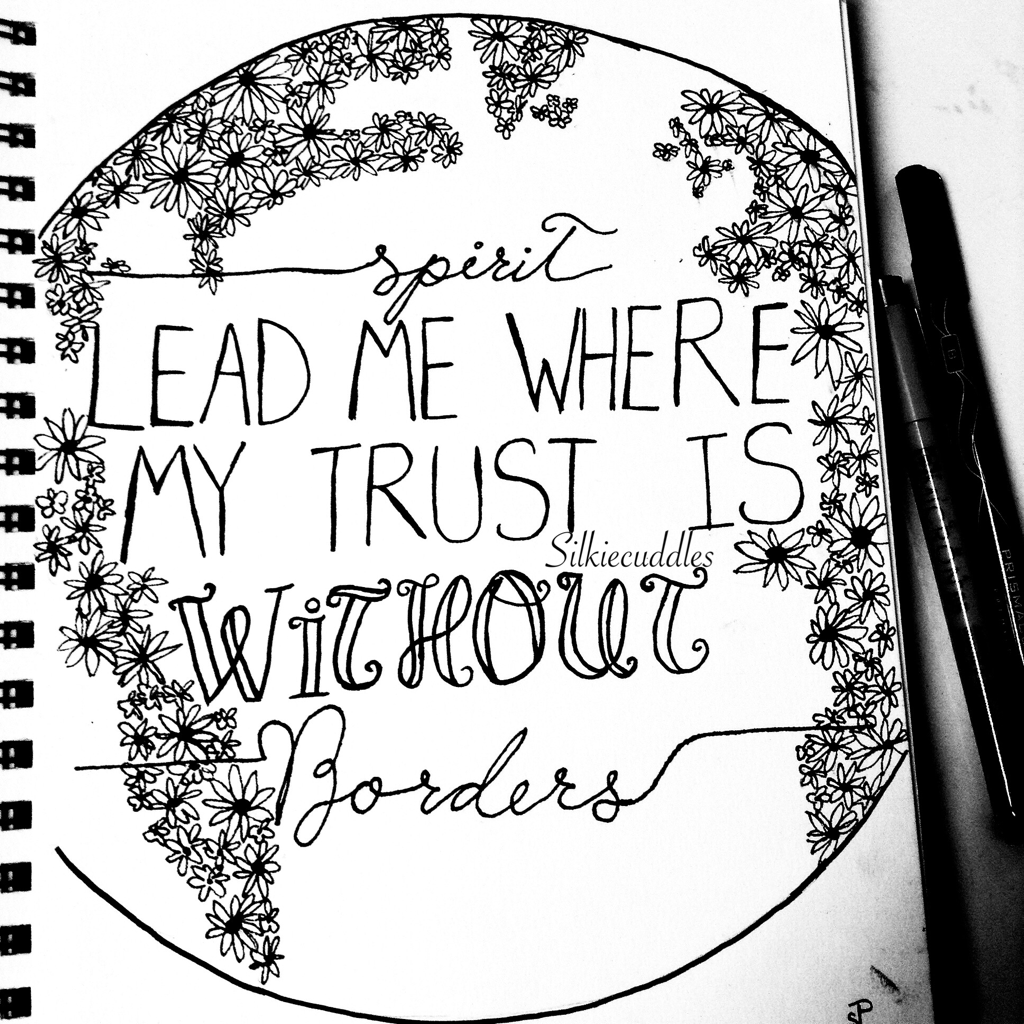 spirit
LEAD ME WHERE
MY TRUST IS
Silkiecuddles
WiTHOUT
Borders